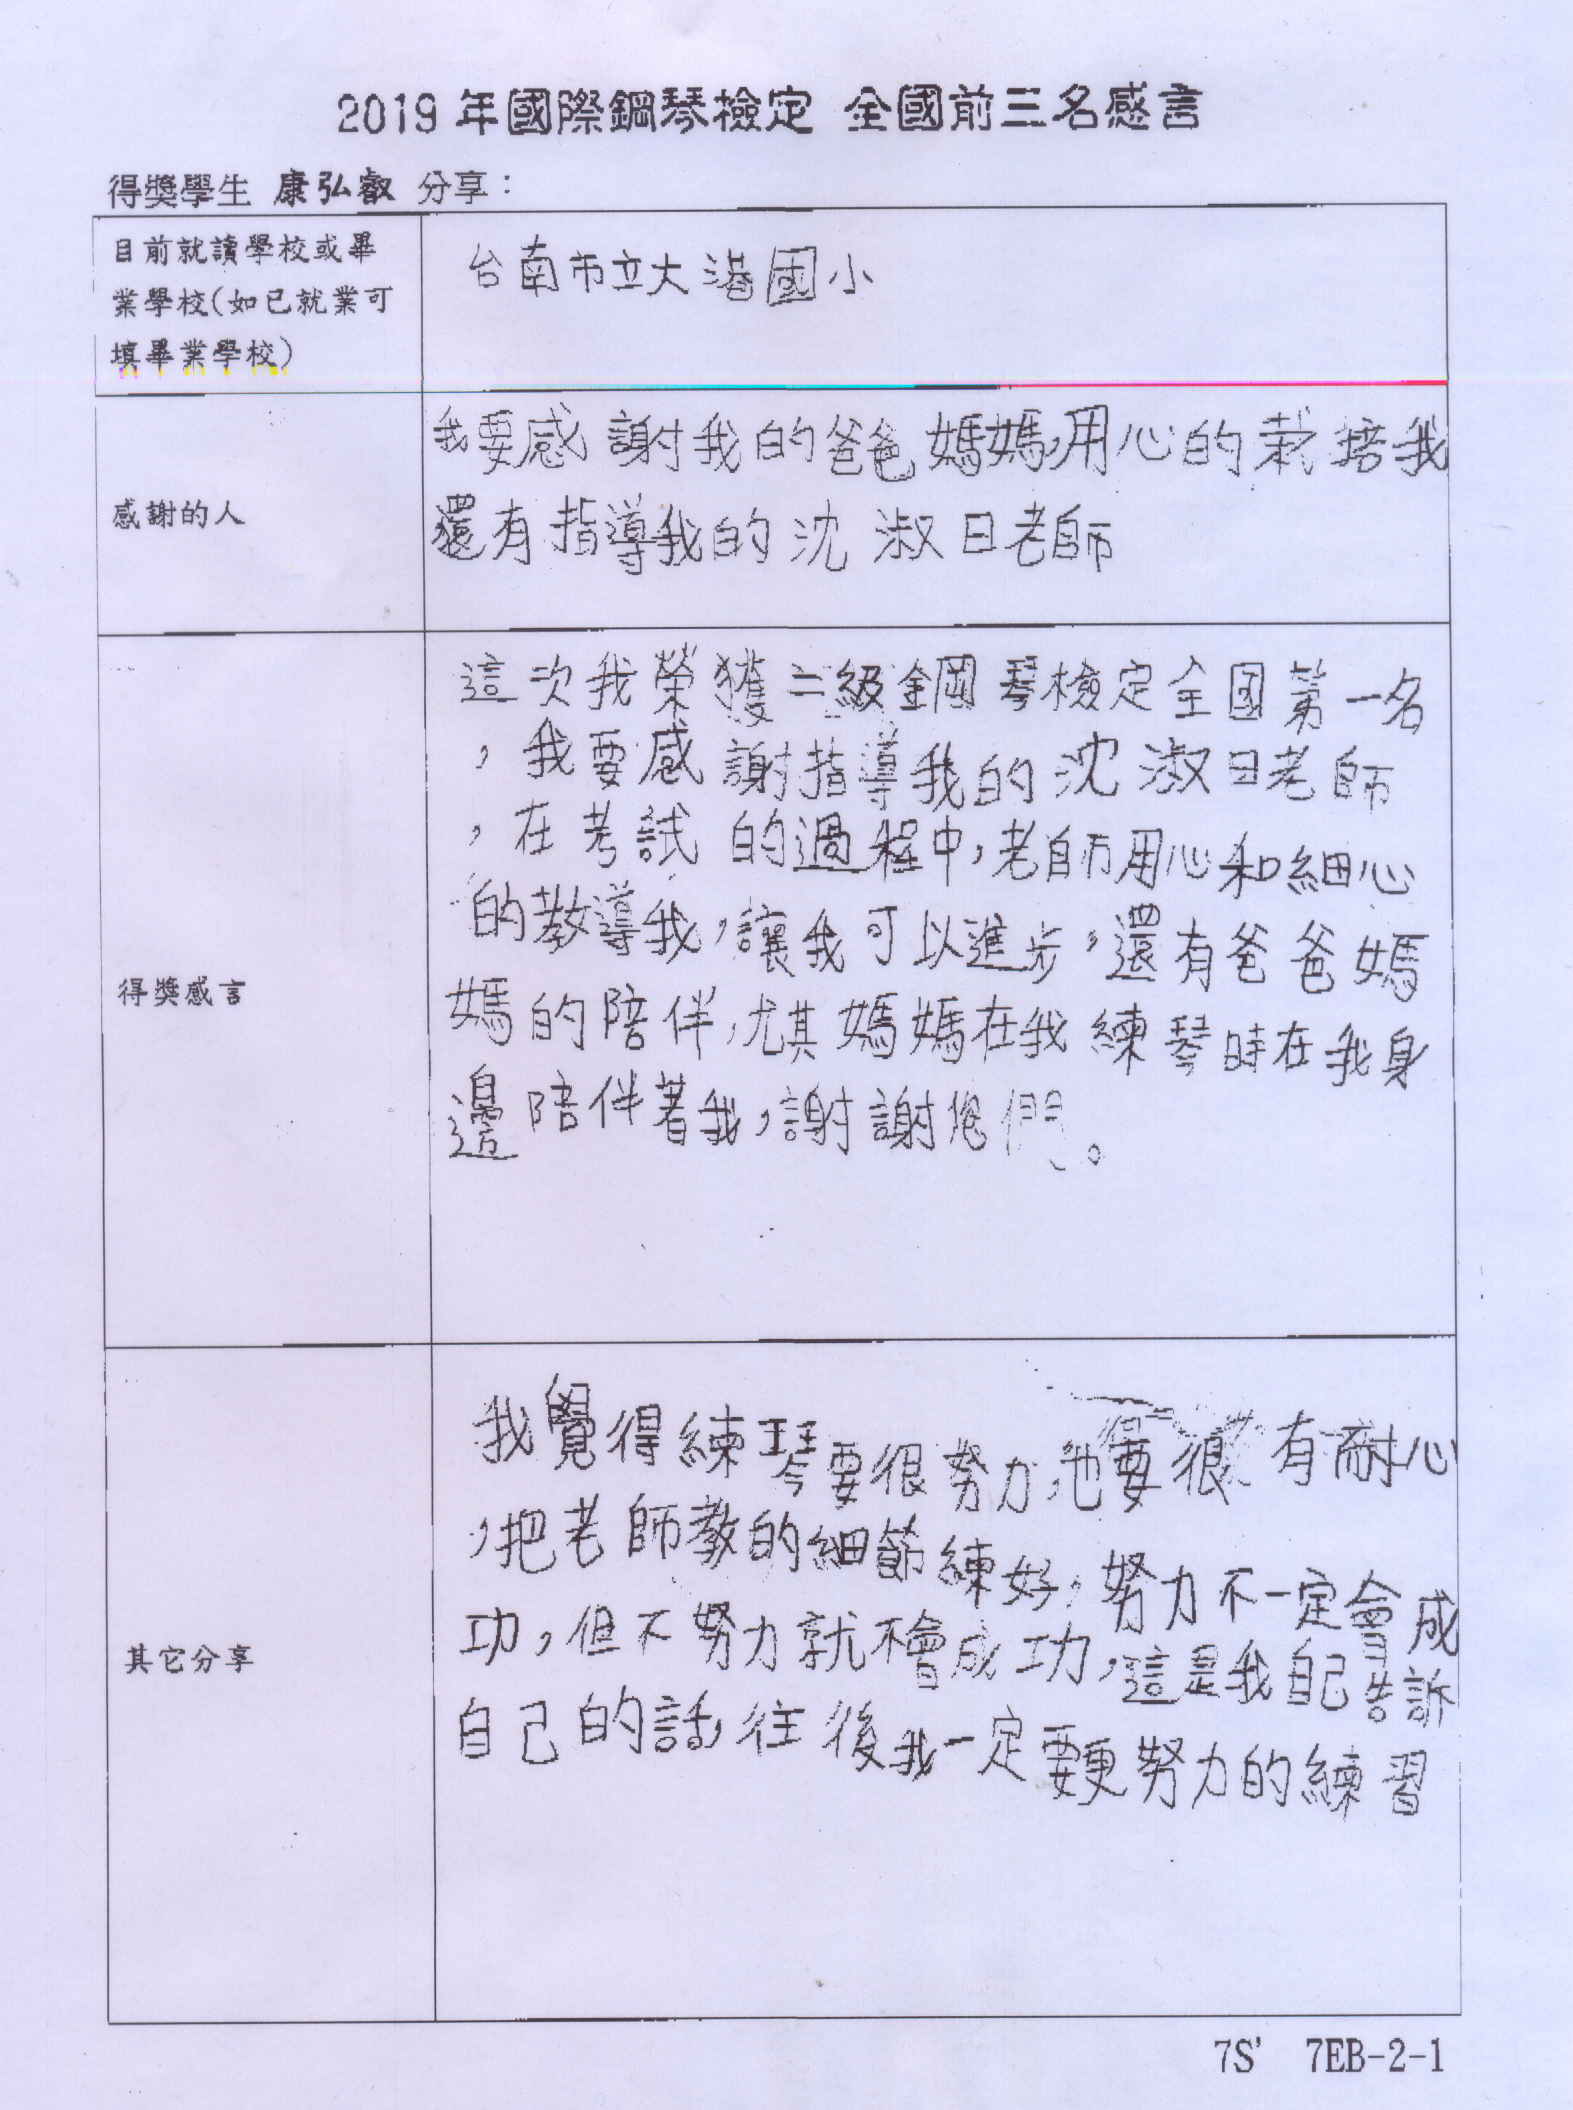 2019 年國際鋼琴檢定 全國前三名感言
得獎學生 康弘叡 分享：
目前就讀學校或畢
業學校(如已就業可
填畢業學校)
台南市立大港國小
感謝的人
我要感謝我的爸爸媽媽,用心的栽培我
還有指導我的沈淑日老師
得獎感言
這次我榮獲二級鋼琴檢定全國第一名
,我要感謝指導我的沈淑日老師
,在考試的過程中,老師用心和細心
的教導我,讓我可以進步,還有爸爸媽
媽的陪伴,尤其媽媽在我練琴時在我身
邊陪伴著我,謝謝他們。
其它分享
我覺得練琴要很努力,也要很有耐心
,把老師教的細節練好,努力不一定會成
功,但不努力就不會成功,這是我自己告訴
自己的話,往後我一定要更努力的練習
7S' 7EB-2-1